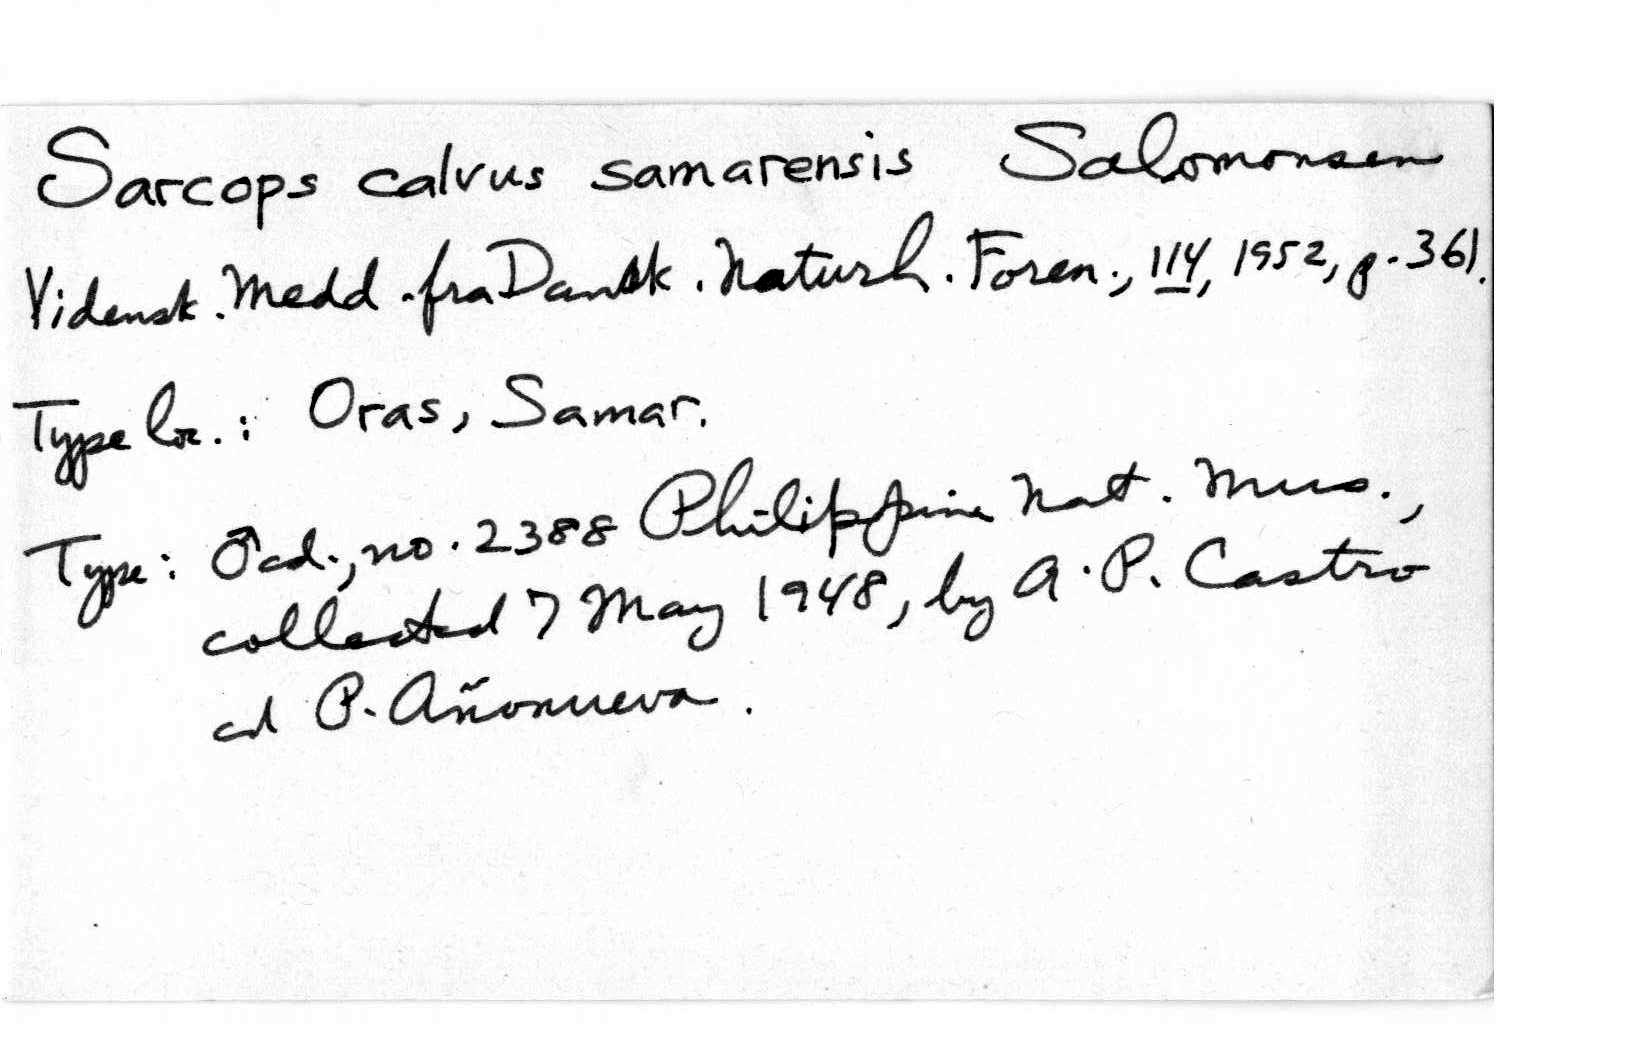 Sarcops calvus samarensis Salomonsen
Vidensk. Medd. fra Dansk. Naturh. Foren., 114, 1952, p. 361.
Type loc.: Oras, Samar.
Type: ♂ ad., no. 2388 Philippine Nat. Mus.,
collected 7 May 1948, by A. P. Castro
ad P. Añonueva.